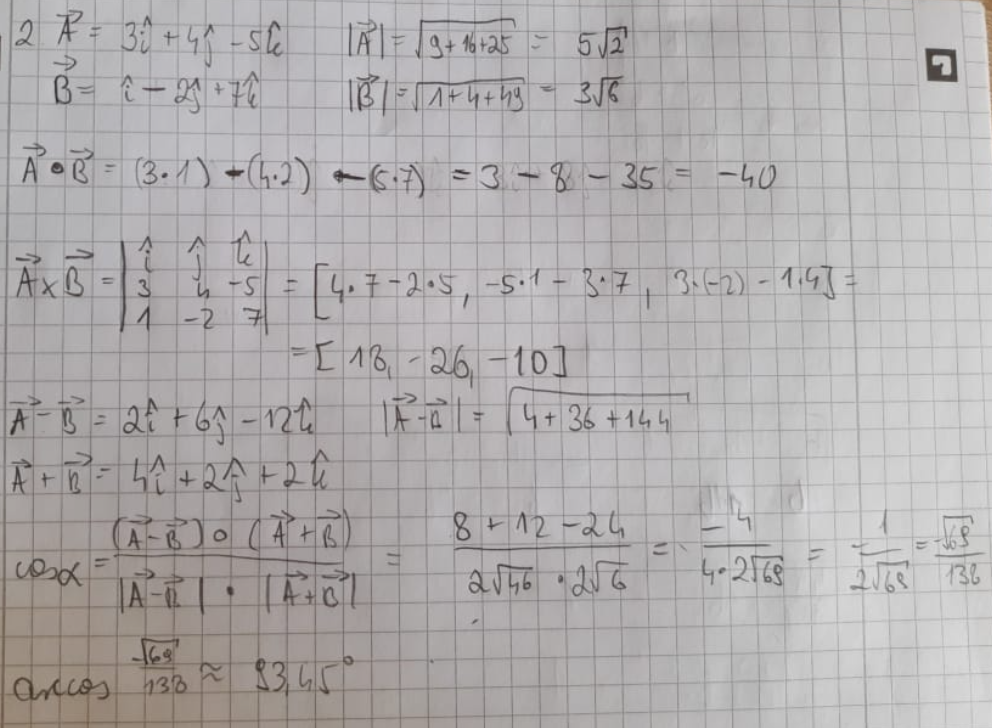 2 A⃗ = 3î + 4ĵ - 5k̂ |A⃗| = √(9+16+25) = 5√2
B⃗ = î - 2ĵ + 7k̂ |B⃗| = √(1+4+49) = 3√6
A⃗ ∘ B⃗ = (3·1) - (4·2) - (5·7) = 3 - 8 - 35 = -40
A⃗ × B⃗ = | î ĵ k̂ | 3 4 -5 | 1 -2 7 | = [4·7 - 2·5, -5·1 - 3·7, 3·(-2) - 1·4] =
= [18, -26, -10]
A⃗ - B⃗ = 2î + 6ĵ - 12k̂ |A⃗ - B⃗| = √(4 + 36 + 144)
A⃗ + B⃗ = 4î + 2ĵ + 2k̂
cosα = (A⃗ - B⃗) ∘ (A⃗ + B⃗) / |A⃗ - B⃗| · |A⃗ + B⃗| = 8 + 12 - 24 / 2√46 · 2√6 = -4 / 4·2√69 = -1 / 2√69 = -√69 / 138
arccos -√69 / 138 ≈ 93,45°